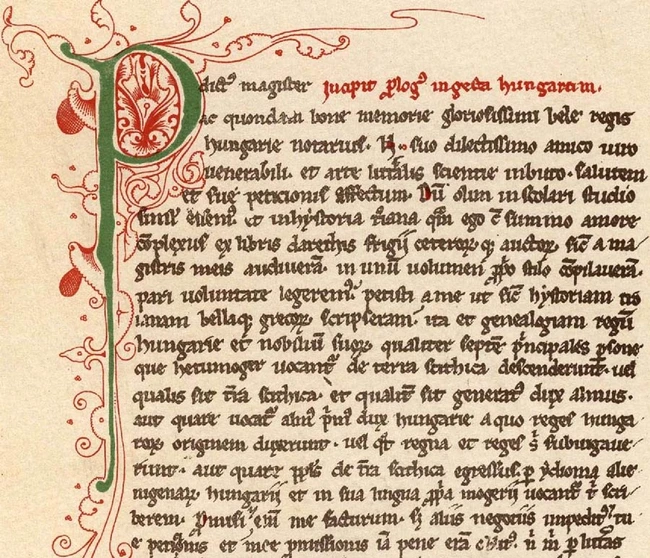 P dict⁹ magister Incipit plog⁹ in gesta hungarum.
ac quondam bone memorie gloriosissimi bele regis
hungarie notarius. N. suo dilectissimo amico uiro
uenerabili. et arte litt̄alis scientie inbuto. salutem
et sue peticionis effectum. Dū olim in scolari studio
simul essem⁹. et in hystoria t̄iana qm̄ ego c̄ summo amore
cōplexus ex libris darethis frigij ceteroꝝ qꝫ auctoꝝ. sic̄ a ma
gistris meis audiuerā. in unū volumen pp̄o stilo cōpilauerā.
pari uoluntate legerem⁹. petisti a me ut sic̄ hystoriam tro
ianam bellaqꝫ grecoꝝ scripseram. ita et genealogiam regū
hungarie et nobiliū suoꝝ. qualiter septē p̄ncipales p̄sone
que hetumoger uocant̄ de terra scithica descenderūt. uel
qualis sit tr̄a scithica. et qualit̄ sit generat⁹ dux almus.
aut quare uocat̄ alm⁹ p̄m⁹ dux hungarie a quo reges hunga
roꝝ originem duxerunt. uel qt̄ regna et reges s̄ subiugaue
runt. aut quare ppl̄s de tr̄a scithica egressus. p ydioma alie
nigenaꝝ hungarij et in sua lingua pp̄a mogerij uocant̄ t̄ scri
berem. Promisi em̄ me facturum. sꝫ aliis negotiis impedit⁹. tu
e petic̄onis et mee pmissionis iā pene erā n̄ m̄ p litt̄as